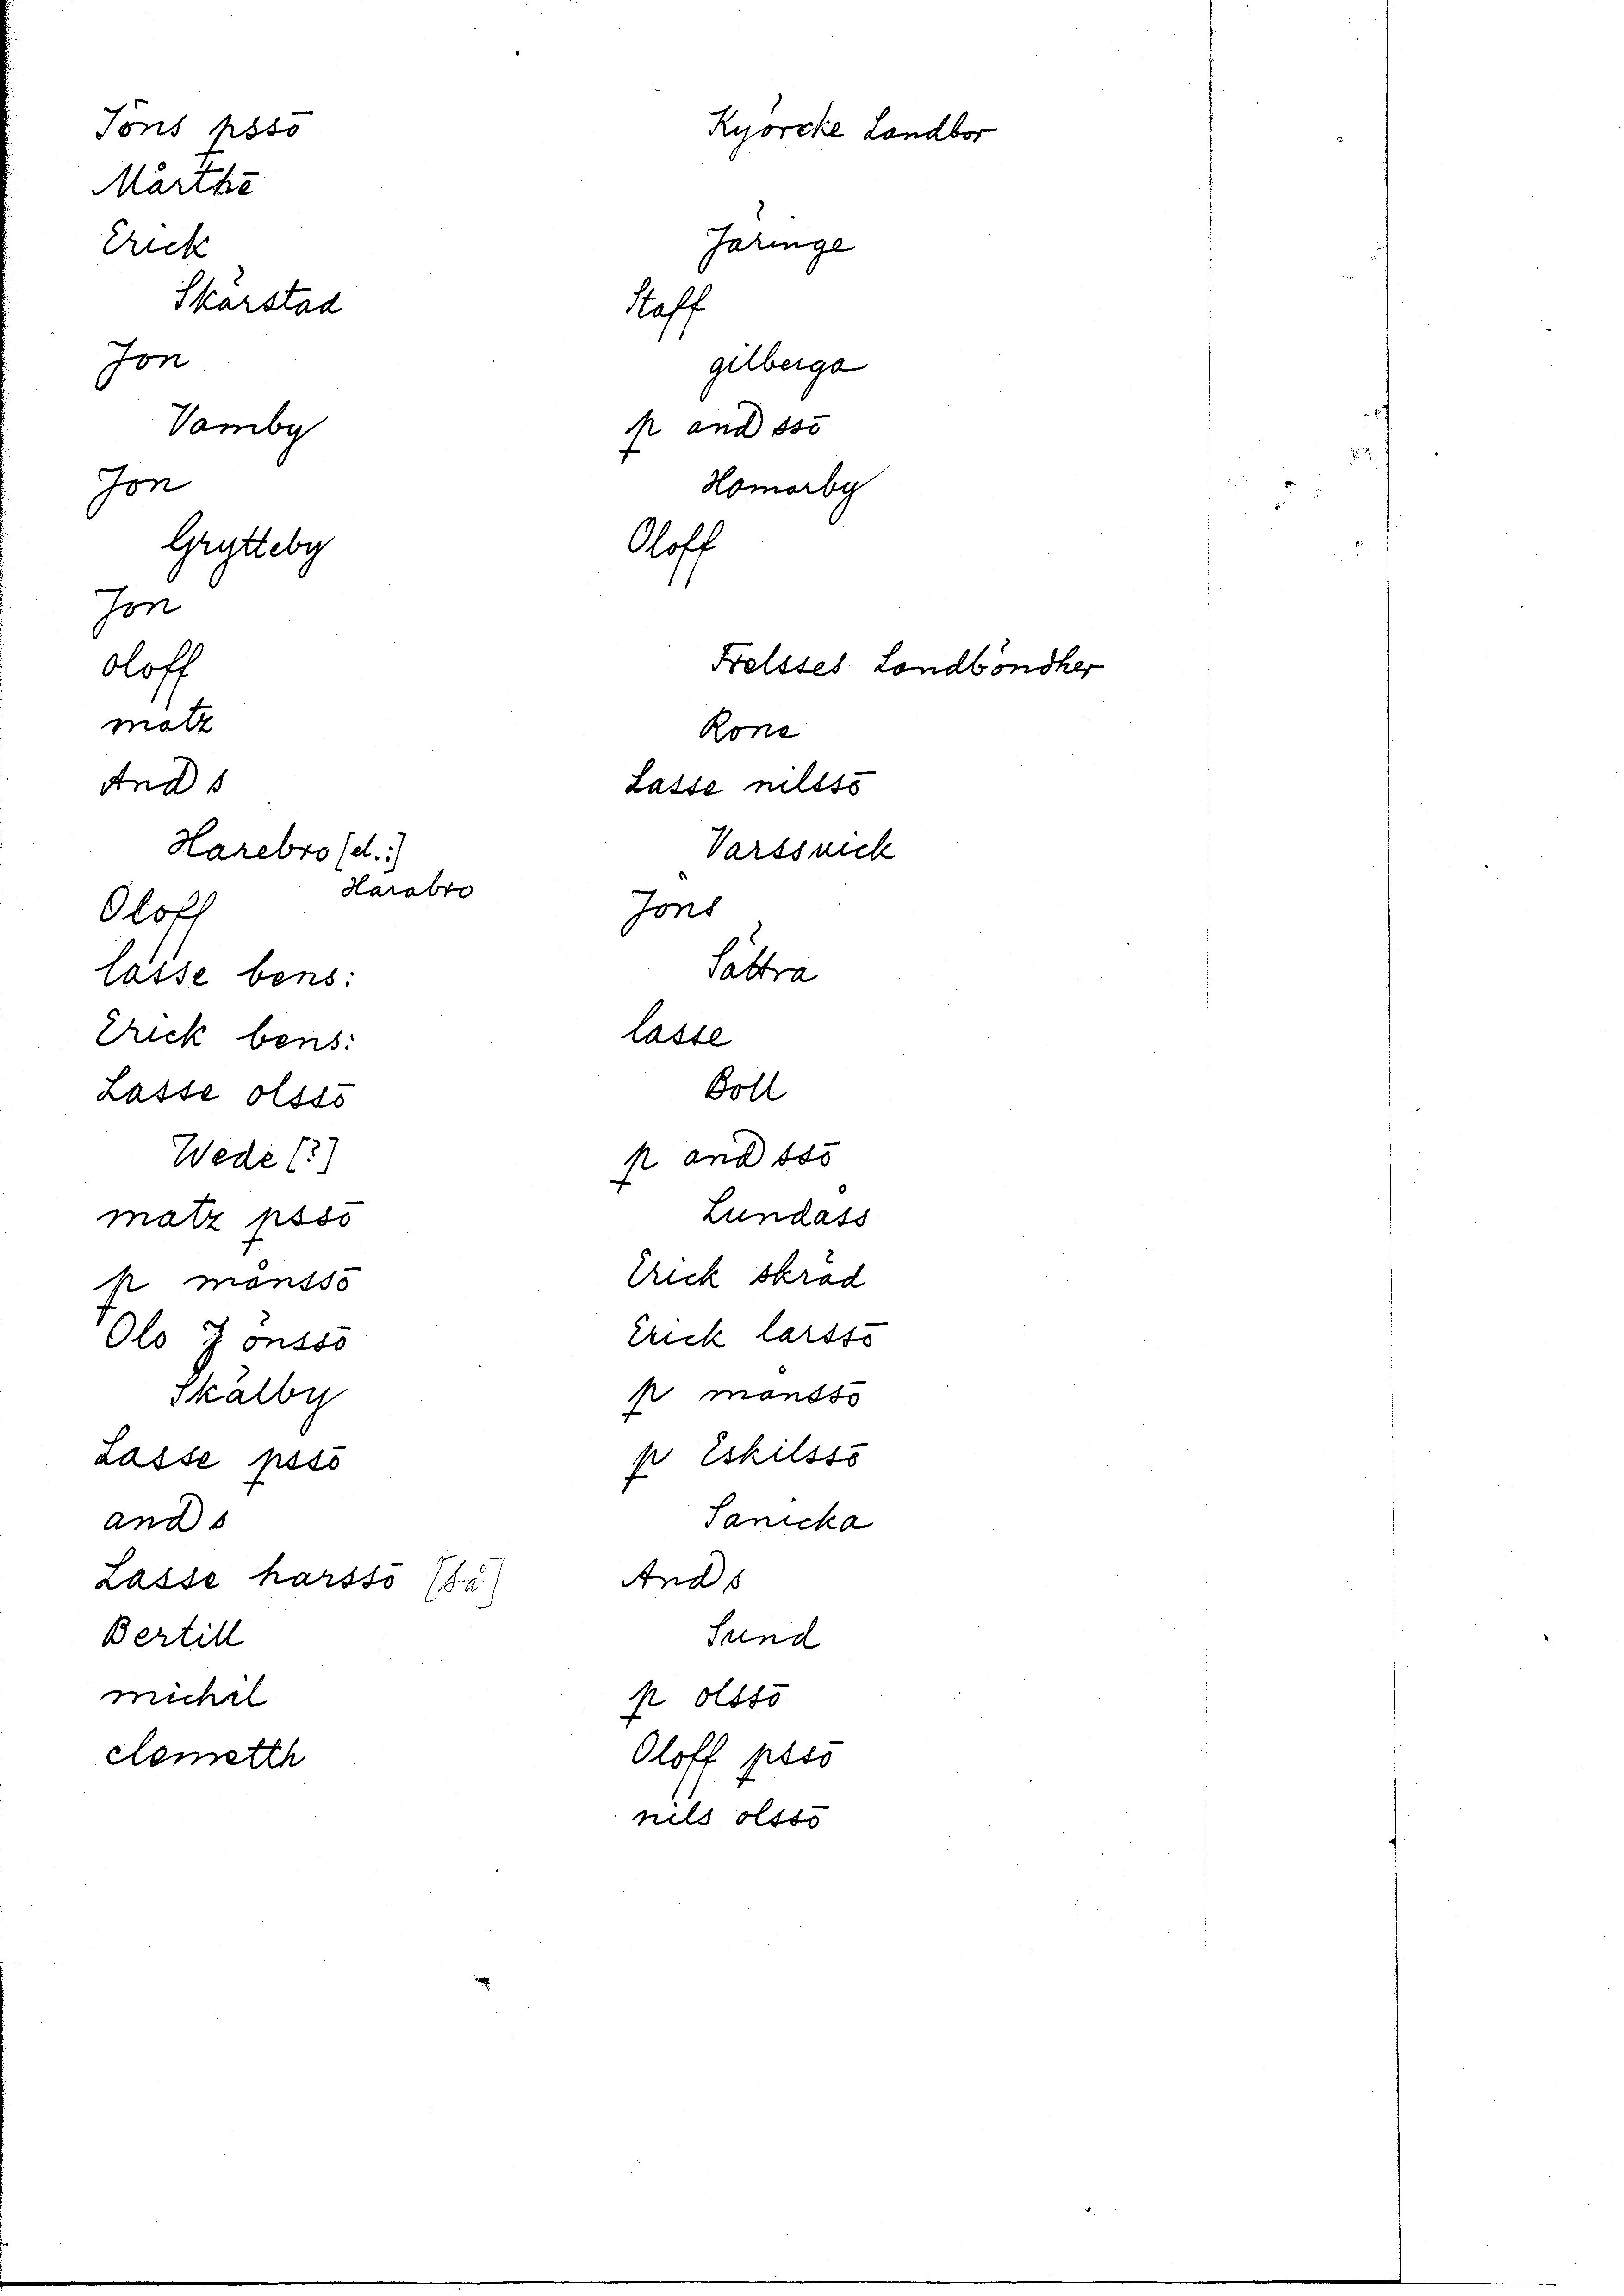 Jöns pssō
Mårthē
Erick
Skärstad
Jon
Vamby
Jon
Grytteby
Jon
oloff
matz
And s
Harebro [el.:]
Harabro
Oloff
lasse bens:
Erick bens:
Lasse olssō
Wede [?]
matz pssō
p månssō
Olo Jönssō
Skälby
Lasse pssō
and s
Lasse harssō [så]
Bertill
michil
clemetth
Kyörcke Landbor
Järinge
Staff
gilberga
p and ssō
Homarby
Oloff
Frelsses Landböndher
Rone
Lasse nilssō
Varssvick
Jöns
Sättra
lasse
Boll
p and ssō
Lundåss
Erick skräd
Erick larssō
p månssō
p Eskilssō
Sanicka
And s
Sund
p olssō
Oloff pssō
nils olssō